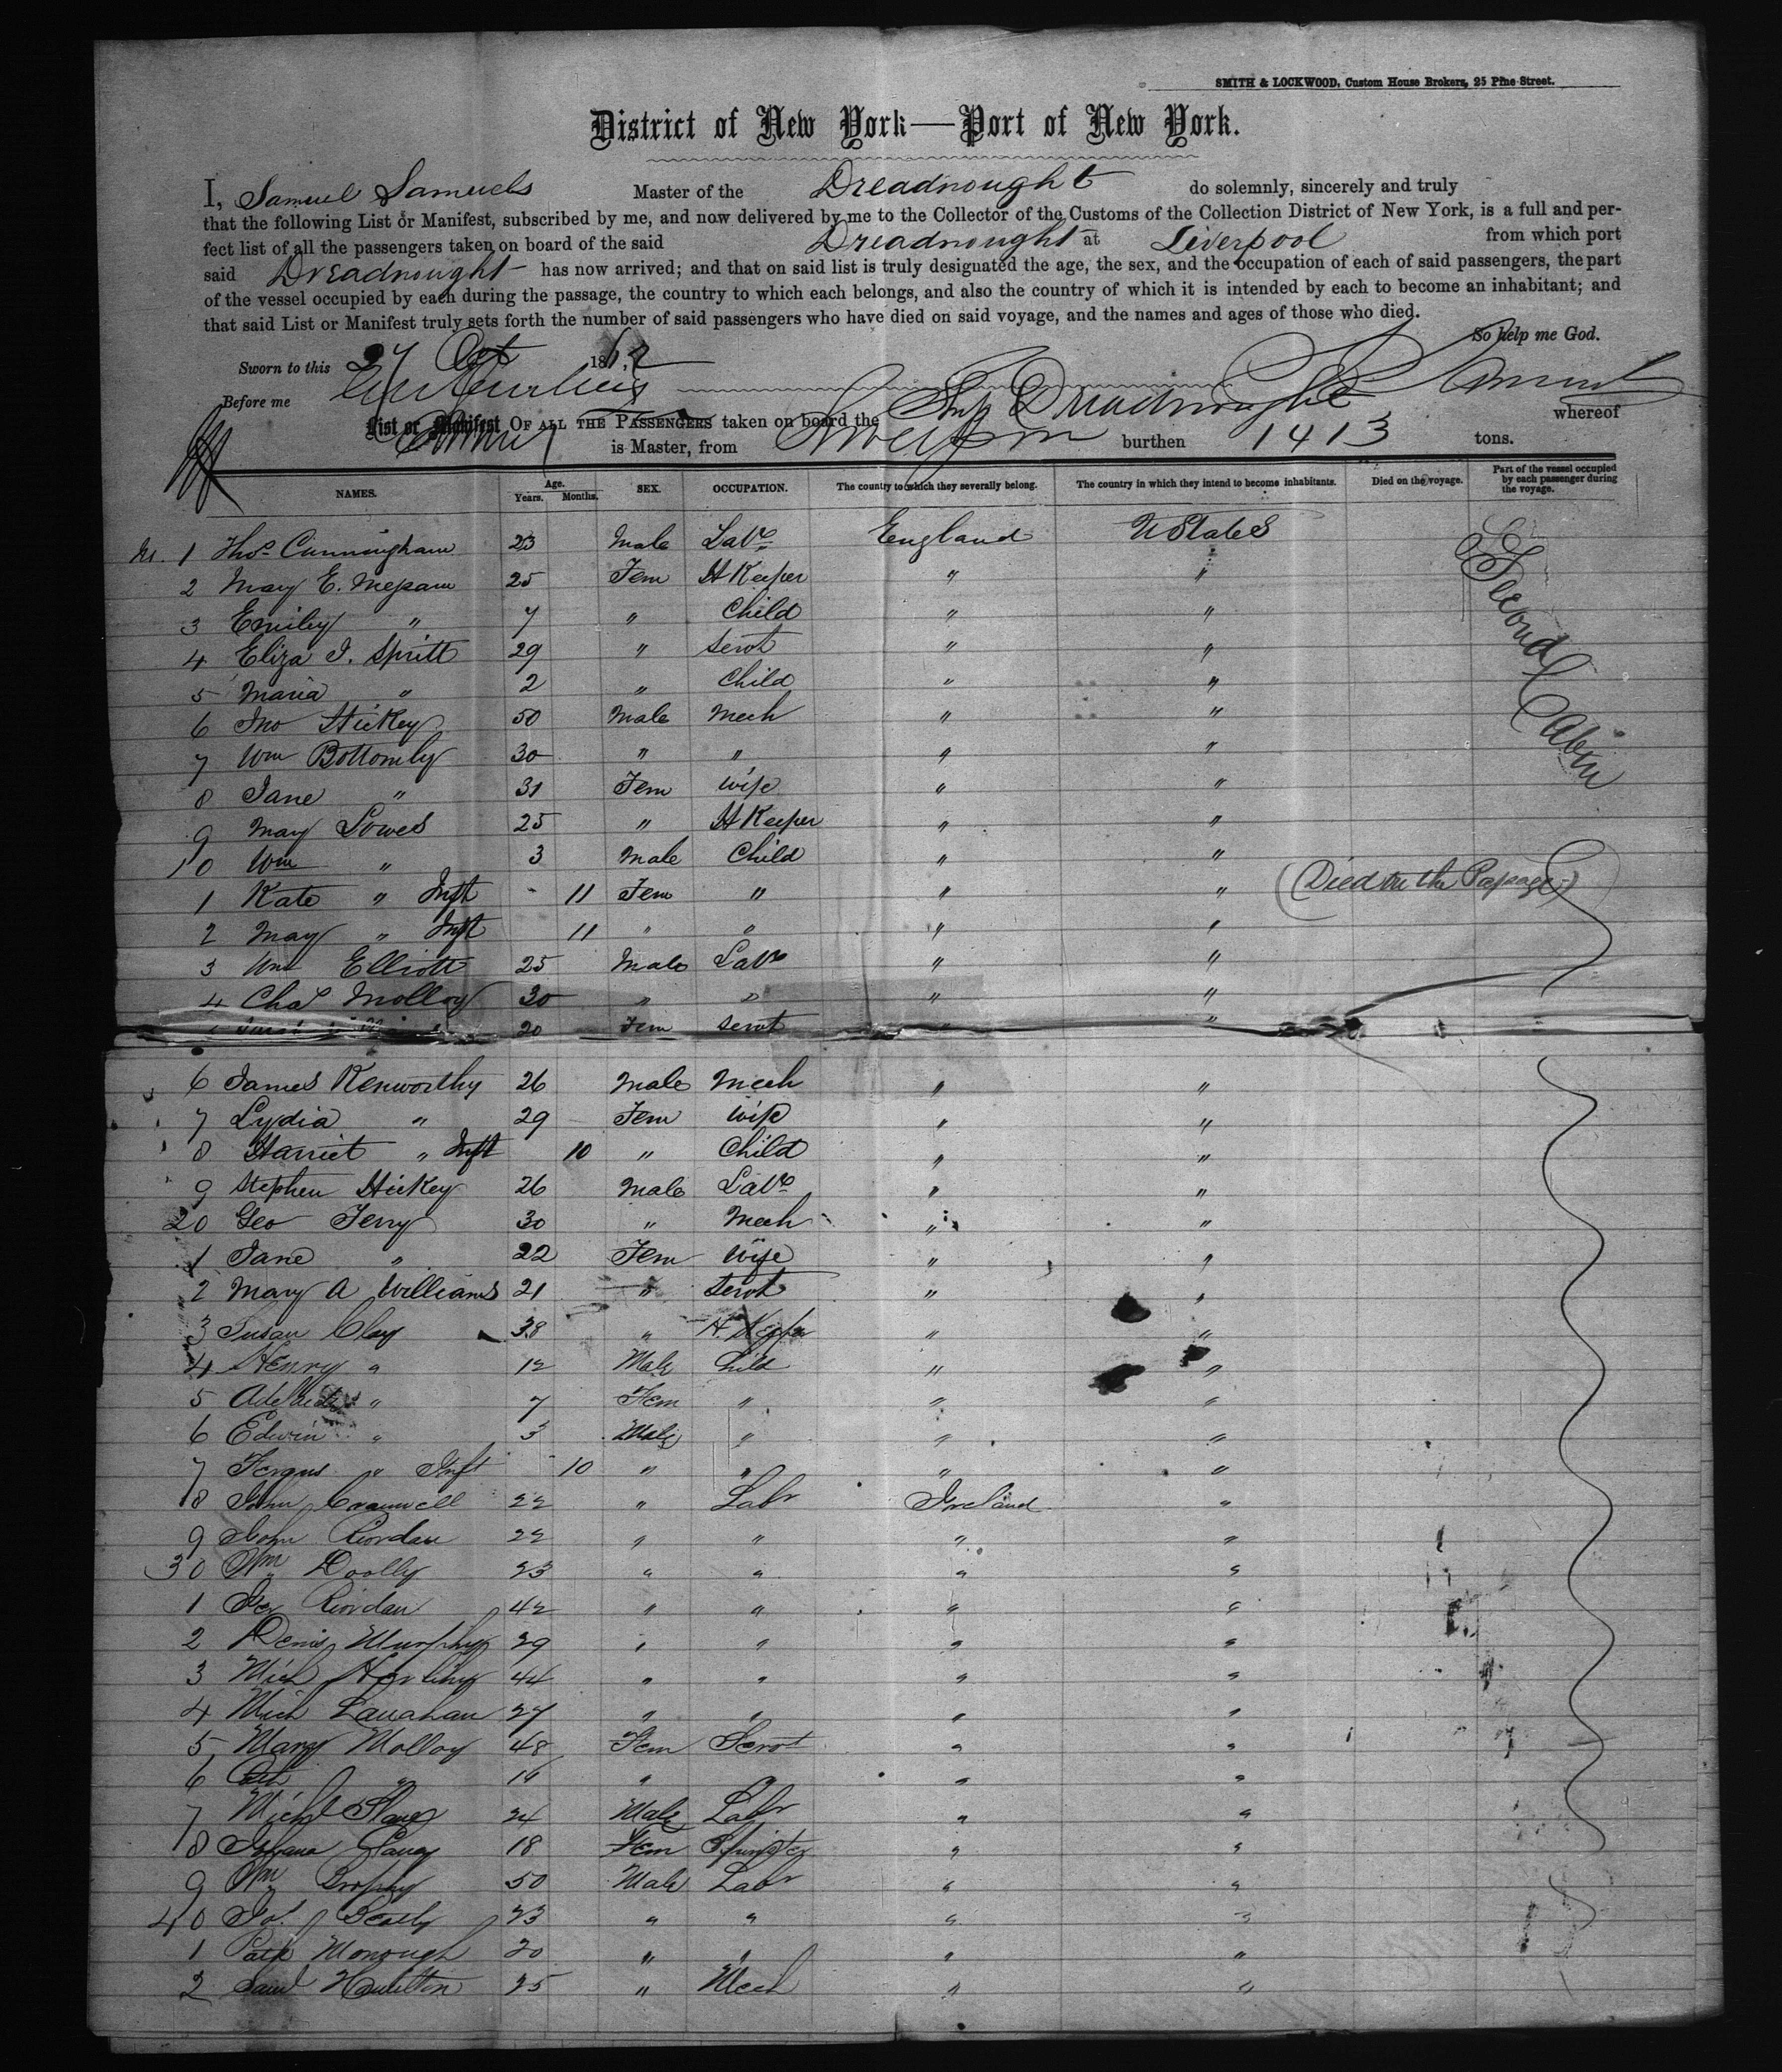 SMITH & LOCKWOOD, Custom House Brokers, 25 Pine Street.
District of New York—Port of New York.
I, Samuel Samuels Master of the Dreadnought do solemnly, sincerely and truly
that the following List or Manifest, subscribed by me, and now delivered by me to the Collector of the Customs of the Collection District of New York, is a full and per-
fect list of all the passengers taken on board of the said Dreadnought at Liverpool from which port
said Dreadnought has now arrived; and that on said list is truly designated the age, the sex, and the occupation of each of said passengers, the part
of the vessel occupied by each during the passage, the country to which each belongs, and also the country of which it is intended by each to become an inhabitant; and
that said List or Manifest truly sets forth the number of said passengers who have died on said voyage, and the names and ages of those who died.
So help me God.
Sworn to this 27 Oct 1862 S Samuels
Before me
List or Manifest OF ALL THE PASSENGERS taken on board the Ship Dreadnought whereof
is Master, from Liverpool burthen 1413 tons.
NAMES. Age. Years. Months. SEX. OCCUPATION. The country to which they severally belong. The country in which they intend to become inhabitants. Died on the voyage. Part of the vessel occupied by each passenger during the voyage.
1 Thos Cunningham 23 Male Labr England U States Second Cabin
2 Mary E. Mepam 25 Fem H Keeper " "
3 Emiley " 7 " Child " "
4 Eliza J. Spritt 29 " Servt " "
5 Maria " 2 " Child " "
6 Jno Hickey 50 Male Mech " "
7 Wm Bottomly 30 " " " "
8 Jane " 31 Fem Wife " "
9 May Lowes 25 " H Keeper " "
10 Wm " 3 Male Child " "
1 Kate " Inft 11 Fem " " " (Died on the Passage)
2 May " Inft 11 " " " "
3 Wm Elliott 25 Male Labr " "
4 Chas Molloy 30 " " " "
20 Fem Servt "
6 James Kenworthy 26 Male Mech " "
7 Lydia " 29 Fem Wife " "
8 Harriet " Inft 10 " Child " "
9 Stephen Hickey 26 Male Labr " "
20 Geo Terry 30 " Mech " "
1 Jane " 22 Fem Wife " "
2 Mary A Williams 21 " Servt " "
3 Susan Clay 38 " H. Keeper " "
4 Henry " 12 Male Child " "
5 Adelaide " 7 Fem " " "
6 Edwin " 3 Male " " "
7 Fergus " Inft 10 " " " "
8 John Cramwell 22 " Labr Ireland "
9 John Riordan 22 " " " "
30 Wm Doolly 23 " " " "
1 Jer Riordan 42 " " " "
2 Denis Murphy 29 " " " "
3 Mich 44 " " " "
4 Mich Lanahan 27 " " " "
5 Margy Molloy 48 Fem Servt " "
6 Cath " 16 " " " "
7 Michl 24 Male Labr " "
8 Johana 18 Fem Spinster " "
9 Wm Brophy 50 Male Labr " "
40 Jos. 23 " " " "
1 Patk Monough 20 " " " "
2 Saml Hamilton 25 " Mech " "